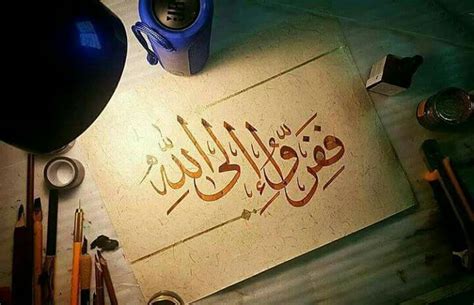 ففروا إلى الله